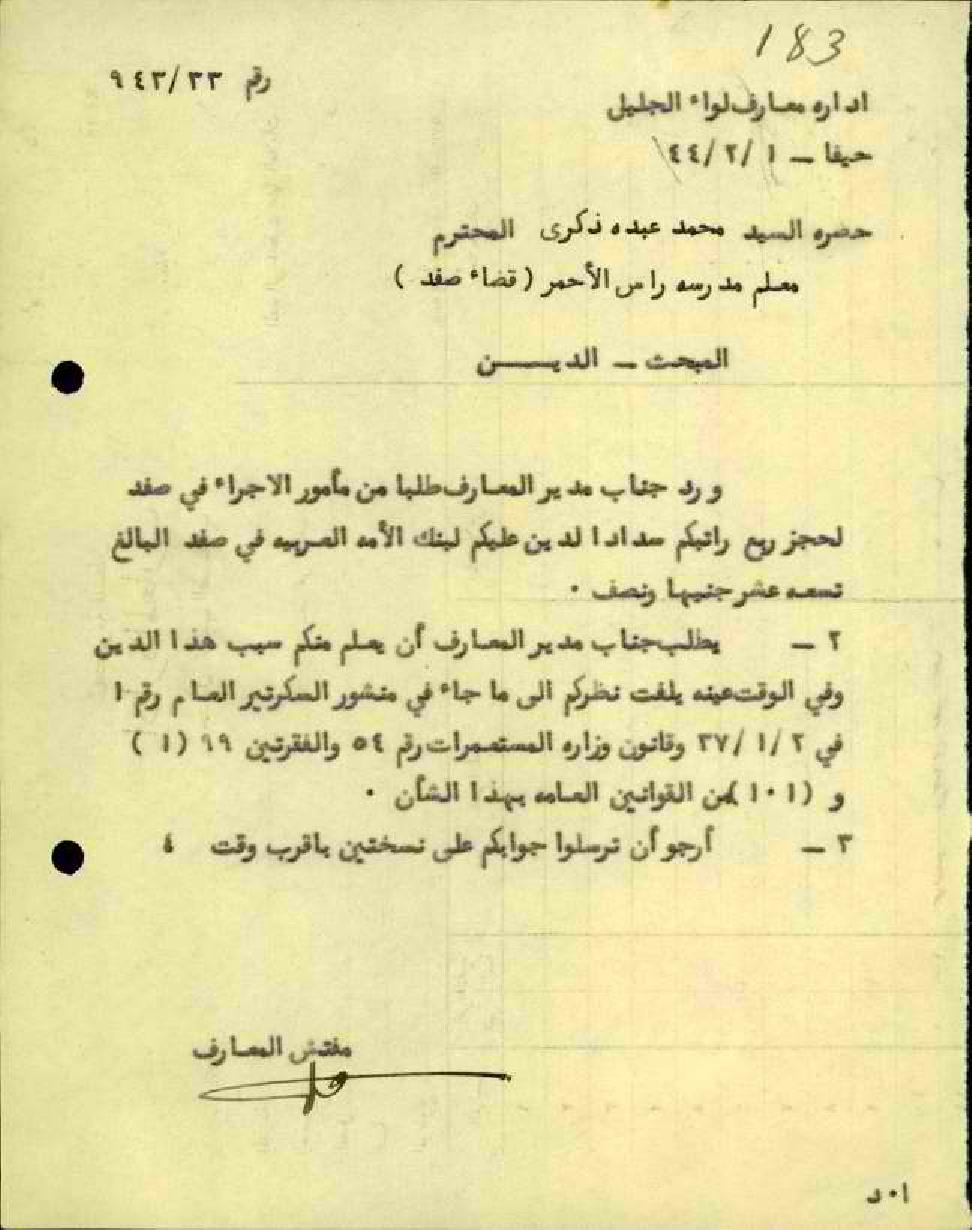 183
رقم ٩٤٣/٣٣
اداره معارف لواء الجليل
حيفا ــ ١ /٢/ ٤٤
حضره السيد محمد عبده ذكرى المحترم
معلم مدرسه راس الأحمر ( قضاء صفد )
المبحث ــ الديــــن
ورد جناب مدير المعارف طلبا من مأمور الاجراء في صفد
لحجز ربع راتبكم سدادا لدين عليكم لبنك الأمه العربيه في صفد البالغ
تسعه عشر جنيها ونصف ٠
٢ ــ يطلب جناب مدير المعارف أن يعلم منكم سبب هذا الدين
وفي الوقت عينه يلفت نظركم الى ما جاء في منشور السكرتير العام رقم ١
في ٢ /١/ ٣٧ وقانون وزاره المستعمرات رقم ٥٤ والفقرتين ٩٩ ( ١ )
و (١٠١ )من القوانين العامه بهذا الشأن ٠
٣ ــ أرجو أن ترسلوا جوابكم على نسختين باقرب وقت ٤
مفتش المعارف
ا٠د